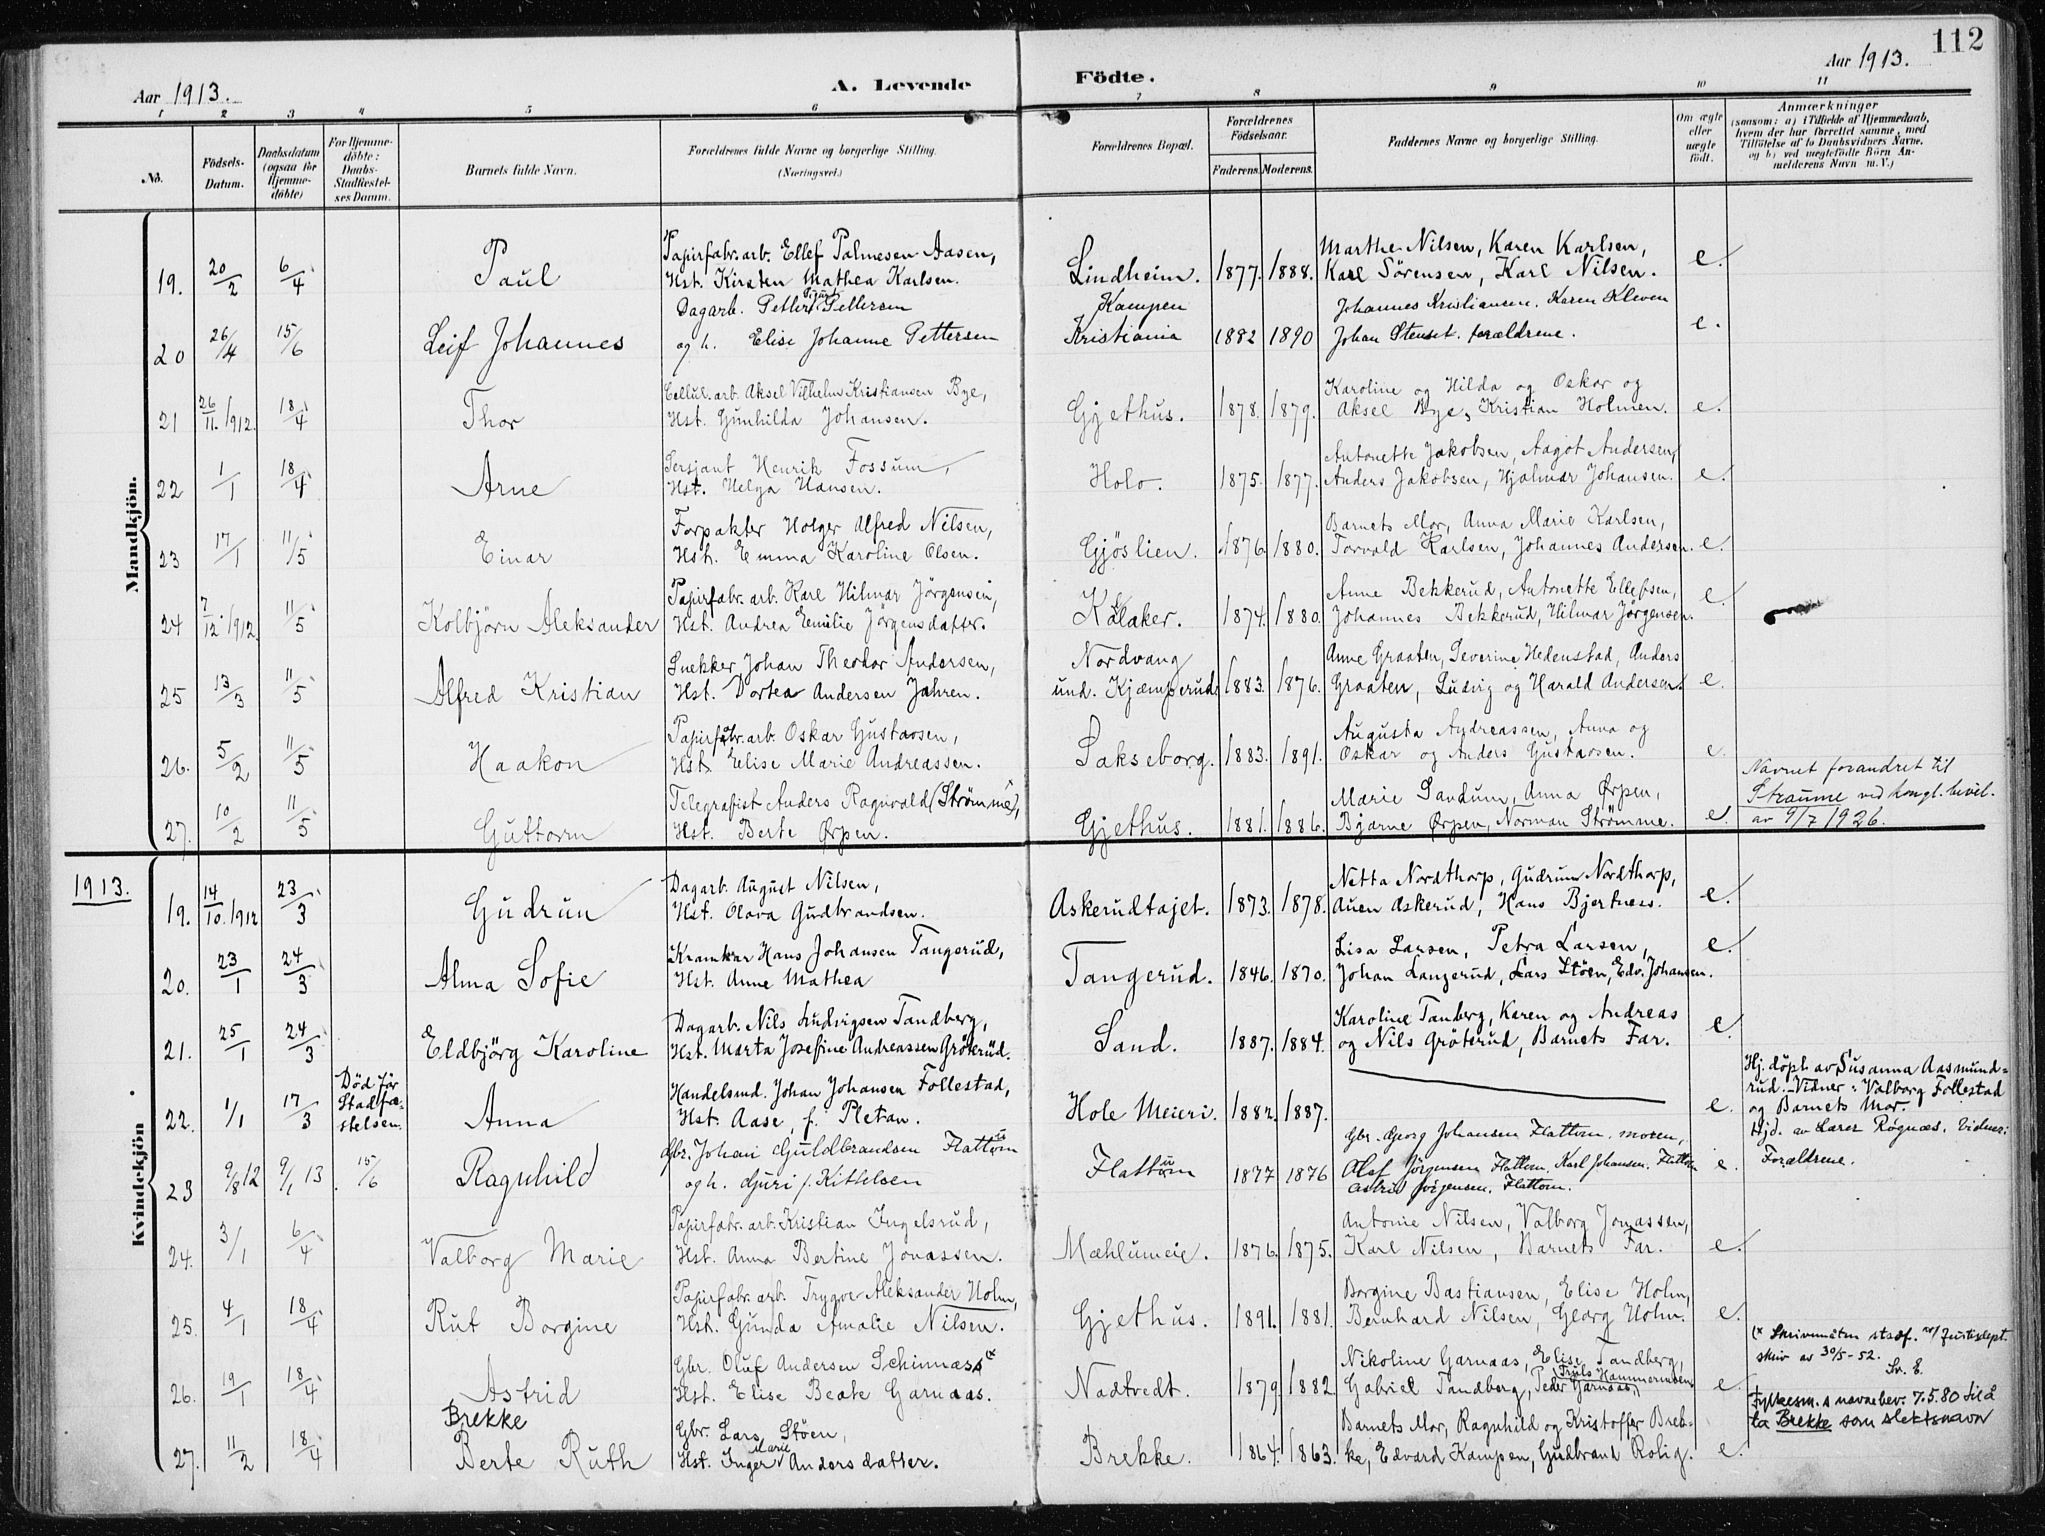 112
Aar 1913.
A. Levende Födte.
Aar 1913.
1 2 3 4 5 6 7 8 9 10 11
No.
Födsels-Datum.
Daabsdatum (ogsaa for Hjemme-döbte)
For Hjemme-döbte: Daabs-Stadfæstel-ses Datum.
Barnets fulde Navn.
Forældrenes fulde Navne og borgerlige Stilling. (Næringsvei.)
Forældrenes Bopæl.
Forældrenes Födselsaar.
Faderens. Moderens.
Faddernes Navne og borgerlige Stilling.
Om ægte eller uægte födt.
Anmærkninger
(saasom: a) i Tilfælde af Hjemmedaab, hvem der har forrettet samme, med Tilföielse af to Daabsvidners Navne, og b) ved uægtefödte Börn An-melderens Navn m. V.)
Mandkjön.
19. 20/2 6/4 Paul
Papirfabr.arb. Ellef Palmesen Aasen,
Hst. Kirsten Mathea Karlsen.
Lindheim. 1877. 1888.
Marthe Nilsen, Karen Karlsen,
Karl Sörensen, Karl Nilsen. e.
20 26/4 15/6 Leif Johannes
Dagarb. Petter Pettersen
og h. Elise Johanne Pettersen
Kampen
Kristiania 1882 1890
Johannes Kristiansen. Karen Kleven
Johan Stenset. forældrene. e.
21 26/11. 1912. 18/4 Thor
Cellul.arb. Aksel Vilhelm Kristiansen Bye,
Hst. Gunhilda Johansen.
Gjethus. 1878. 1879.
Karoline og Hilda og Oskar og
Aksel Bye, Kristian Holmen. e.
22 1/1 18/4 Arne
Sersjant Henrik Fossum,
Hst. Helga Hansen.
Holo. 1875. 1877.
Antonette Jakobsen, Aagot Andersen,
Anders Jakobsen, Hjalmar Johansen. e.
23 17/1 11/5 Einar
Forpakter Holger Alfred Nilsen,
Hst. Emma Karoline Olsen.
Gjöslien. 1876. 1880.
Barnets Mor, Anna Marie Karlsen,
Torvald Karlsen, Johannes Andersen. e.
24 7/12. 1912. 11/5 Kolbjörn Aleksander
Papirfabr.arb. Karl Hilmar Jörgensen,
Hst. Andrea Emilie Jörgensdatter.
Kalaker. 1874. 1880.
Anne Bekkerud, Antonette Ellefsen,
Johannes Bekkerud, Hilmar Jörgensen. e.
25 13/3 11/5 Alfred Kristian
Snekker Johan Theodor Andersen,
Hst. Dortea Andersen Jahren.
Nordvang
und. Kjæmperud. 1883. 1876.
Anne Graaten, Severine Hedenstad, Anders
Graaten, Ludvig og Harald Andersen. e.
26. 5/2 11/5 Haakon
Papirfabr.arb. Oskar Gustavsen,
Hst. Elise Marie Andreassen.
Sakseborg. 1883. 1891.
Augusta Andreassen, Anna og
Oskar og Anders Gustavsen. e.
27. 10/2 11/5 Guttorm
Telegrafist Anders Ragnvald (Strömme),
Hst. Berte Ørpen.
Gjethus. 1881. 1886.
Marie Sandum, Anna Ørpen,
Bjarne Ørpen, Norman Strömme. e.
Navnet forandret til
Straume ved kongl. bevil.
av 9/7 1926.
1913.
Kvindekjön
19. 14/10. 1912 23/3 Gudrun
Dagarb. August Nilsen,
Hst. Olava Gudbrandsen.
Askerudtajet. 1873. 1878.
Netta Nordthorp, Gudrun Nordthorp,
Auen Askerud, Hans Bjertness. e.
20. 23/1 24/3 Alma Sofie
Kramkar Hans Johansen Tangerud,
Hst. Anne Mathea
Tangerud. 1846. 1870.
Lisa Larsen, Petra Larsen,
Johan Langerud, Lars Stöen, Edv. Johansen. e.
21. 25/1 24/3 Eldbjörg Karoline
Dagarb. Nils Ludvigsen Tandberg,
Hst. Marta Josefine Andreassen Gröterud.
Sand. 1887. 1884.
Karoline Tanberg, Karen og Andreas
og Nils Gröterud, Barnets Far. e.
22. 1/1 17/3 Död før
Stadfæ-
stelsen.
Anna
Handelsmd. Johan Johansen Follestad,
Hst. Aase, f. Pletan.
Hole Meieri. 1882. 1887. e.
Hj. döpt av Susanna Aasmund-
rud. Vidner: Valborg Follestad
og Barnets Mor.
23 9/8 12 9/1 13 15/6 Ragnhild
Gbr. Johan Guldbrandsen Flattum
og h. Guri f. Kittelsen
Flattum 1877 1876
Gbr. Georg Johansen Flattom. moren,
Olaf Jörgensen Flattom. Karl Johansen. Flattom
Astrid Jörgensen. Flattom. e.
Hjd. av Lærer Rögnæs. Vidner:
Forældrene.
24. 3/1 6/4 Valborg Marie
Papirfabr.arb. Kristian Ingelsrud,
Hst. Anna Bertine Jonassen.
Mæhlumeie. 1876. 1875.
Antonie Nilsen, Valborg Jonassen,
Karl Nilsen, Barnets Far. e.
25. 4/1 18/4 Rut Borgine
Papirfabr.arb. Trygve Aleksander Holm,
Hst. Gunda Amalie Nilsen.
Gjethus. 1891. 1881.
Borgine Bastiansen, Elise Holm,
Bernhard Nilsen, Georg Holm. e.
26. 19/1 18/4 Astrid
Gbr. Oluf Andersen Schinnass (x
Hst. Elise Beate Garnaas.
Nadtvedt. 1879 1882
Nikoline Garnaas, Elise Tandberg,
Gabriel Tandberg, Peder Garnaas, Truls Hammermoen e.
(x Skrivemåten stadf. v/ Justisdept.
skriv av 30/5-52.
Sv. E.
27. 11/2 18/4 Brekke
Berte Ruth
Gbr. Lars Stöen,
Hst. Inger Marie Andersdatter.
Brekke. 1864. 1863.
Barnets Mor, Ragnhild og Kristoffer Brek-
ke, Edvard Kampen, Gudbrand Rolig. e.
Fylkesm.s navnebev. 7.5.80 til å
ta Brekke som slektsnavn